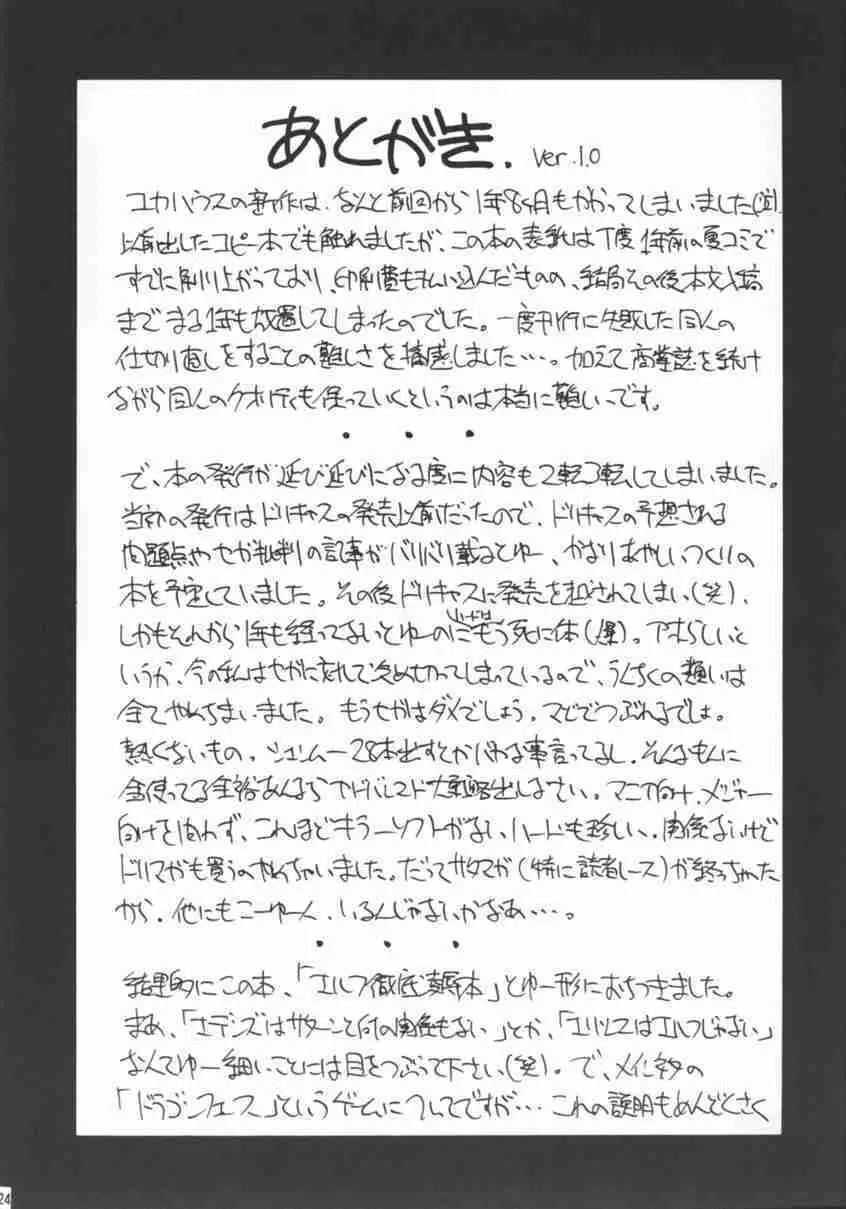 あとがき. ver.1.0
ユカハウスの新作は、なんと前回から1年8ヶ月もかかってしまいました
以前出したコピー本でも触れましたが、この本の表紙は丁度1年前の夏コミで
すでに刷り上がっており、印刷費も払い込んだものの、結局その後本文入稿
までまる1年も放置してしまったのでした。一度刊行に失敗した同人の
仕切り直しをすることの難しさを痛感しました…。加えて商業誌を続け
ながら同人のクオリティも保っていくというのは本当に難しいです。
・・・
で、本の発行が延び延びになる度に内容も2転3転してしまいました。
当初の発行はドリキャスの発売以前だったので、ドリキャスの予想される
問題点やセガ批判の記事がバリバリ載るとゆー、かなりあやしいつくりの
本を予定していました。その後ドリキャスに発売を越されてしまい(笑)、
しかもそれから1年も経ってないとゆーのにもう死に体(爆)。アホらしいと
いうか、今の私はセガに呆れて冷め切ってしまっているので、うんちくの類いは
全てやめちまいました。もうセガはダメでしょう。マジでつぶれるでしょ。
熱くないもの。シェンムー28本出すとかバカな事言ってるし。そんなもんに
金使ってる余裕あんならアドバンスド大戦略出しなさい。マニア向け、メジャー
向けを問わず、これほどキラーソフトがないハードも珍しい。関係ないけど
ドリマガも買うのやめちゃいました。だってサタマガ(特に読者レース)が終っちゃった
から。他にもこーゆー人、いるんじゃないかなあ…。
・・・
結果的にこの本、「エルフ徹底凌辱本」とゆー形におちつきました。
まあ、「エデンズはサターンと何の関係もない」とか、「エリスはエルフじゃない」
なんてゆー細いことには目をつぶって下さい(笑)。で、メインネタの
「ドラゴンフォース」というゲームについてですが…これの説明もめんどくさく
24